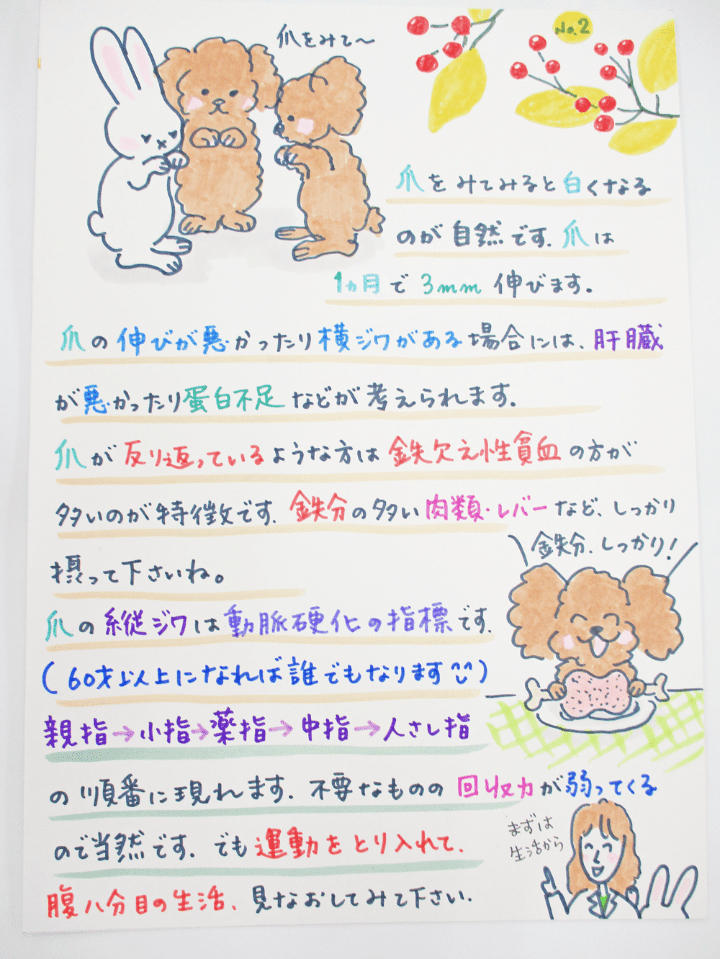 爪をみて〜
No.2
爪をみてみると白くなる
のが自然です.爪は
1ヵ月で3mm伸びます.
爪の伸びが悪かったり横ジワがある場合には、肝臓
が悪かったり蛋白不足などが考えられます.
爪が反り返っているような方は鉄欠乏性貧血の方が
多いのが特徴です.鉄分の多い肉類・レバーなど、しっかり
摂って下さいね。
鉄分、しっかり!
爪の縦ジワは動脈硬化の指標です.
(60才以上になれば誰でもなります)
親指→小指→薬指→中指→人さし指
の順番に現れます.不要なものの回収力が弱ってくる
ので当然です.でも運動をとり入れて、
腹八分目の生活、見なおしてみて下さい.
まずは
生活から